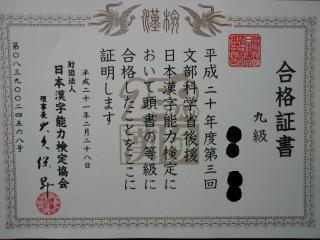 漢検
合格証書
九級
平成二十年度第三回
文部科学省後援
日本漢字能力検定に
おいて頭書の等級に
合格したことをここに
証明します
平成二十一年二月二十八日
財団法人
日本漢字能力検定協会
理事長 大久保昇
第〇八三九〇〇二四五六八号